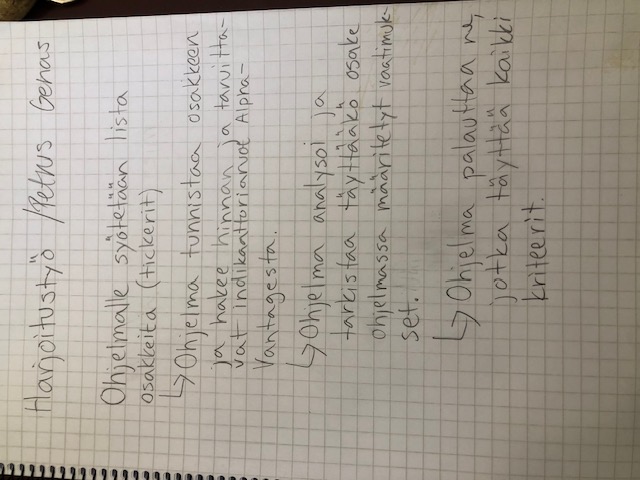 Harjoitustyö /Petrus Genas
Ohjelmalle syötetään lista
osakkeita (tickerit)
↳ Ohjelma tunnistaa osakkeen
ja hakee hinnan ja tarvitta-
vat indikaattoriarvot Alpha-
Vantagesta.
↳ Ohjelma analysoi ja
tarkistaa täyttääkö osake
ohjelmassa määritetyt vaatimuk-
set.
↳ Ohjelma palauttaa ne,
jotka täyttää kaikki
kriteerit.